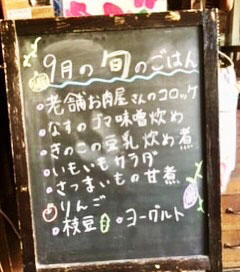 9月の旬のごはん
・老舗お肉屋さんのコロッケ
・なすのゴマ味噌炒め
・きのこの豆乳炒め煮
・いもいもサラダ
・さつまいもの甘煮
・りんご
・枝豆 ・ヨーグルト